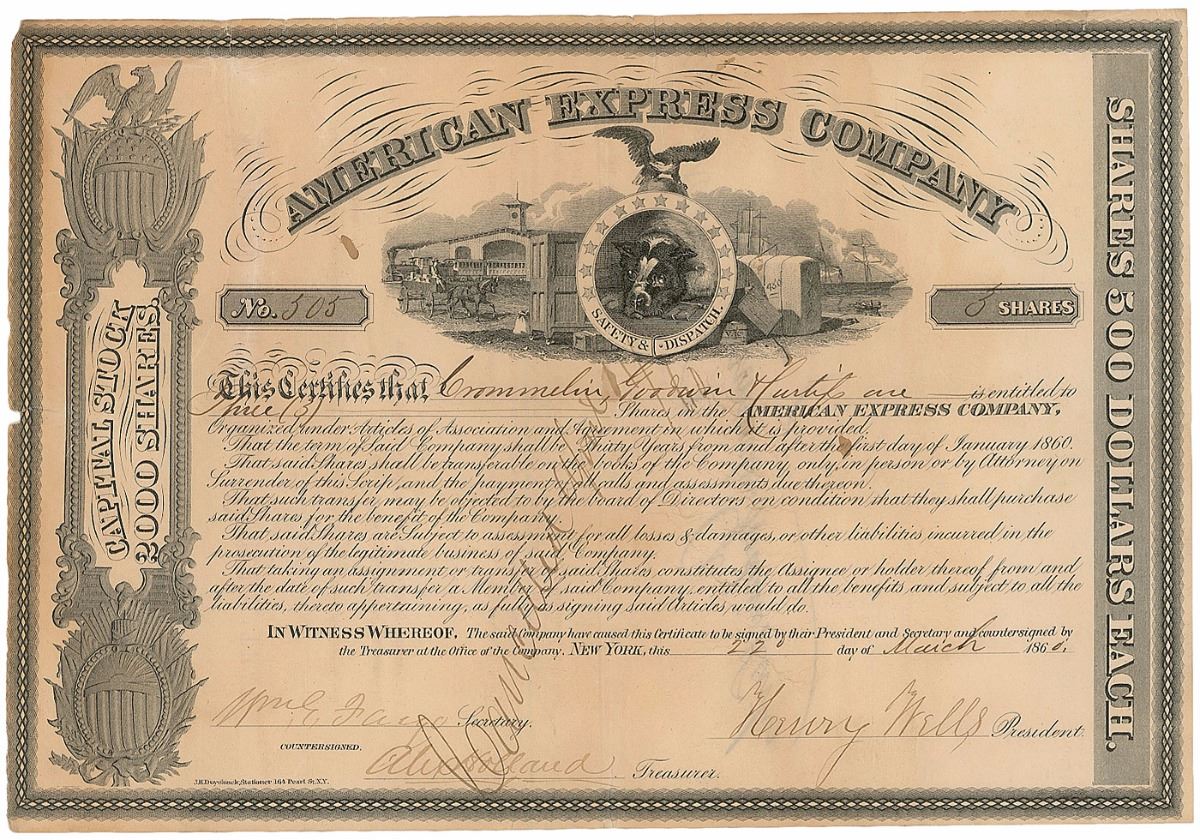 AMERICAN EXPRESS COMPANY
SAFETY & DISPATCH
No. 505
3 SHARES
CAPITAL STOCK
2000 SHARES.
SHARES 500 DOLLARS EACH.
This Certifies that Crommelin Goodwin & Curtis are is entitled to
Three (3) Shares in the AMERICAN EXPRESS COMPANY,
Organized under Articles of Association and Agreement in which it is provided.
That the term of said Company shall be Thirty Years from and after the first day of January 1860.
That said Shares shall be transferable on the books of the Company, only, in person or by Attorney on
Surrender of this Scrip, and the payment of all calls and assessments due thereon.
That such transfer may be objected to by the board of Directors on condition that they shall purchase
said Shares for the benefit of the Company.
That said Shares are Subject to assessment for all losses & damages, or other liabilities incurred in the
prosecution of the legitimate business of said Company.
That taking an assignment or transfer of said Shares constitutes the Assignee or holder thereof from and
after the date of such transfer a Member of said Company, entitled to all the benefits and subject to all the
liabilities, thereto appertaining, as fully as signing said Articles would do.
IN WITNESS WHEREOF, The said Company have caused this Certificate to be signed by their President and Secretary and countersigned by
the Treasurer at the Office of the Company. NEW YORK, this 22d day of March 1860.
Wm G Fargo Secretary.
Henry Wells President.
COUNTERSIGNED,
Alex Holland Treasurer.
J.E. Duyckinck, Stationer 164 Pearl St. N.Y.